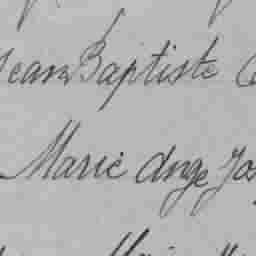 Jean Baptiste
Marie Ange Jos